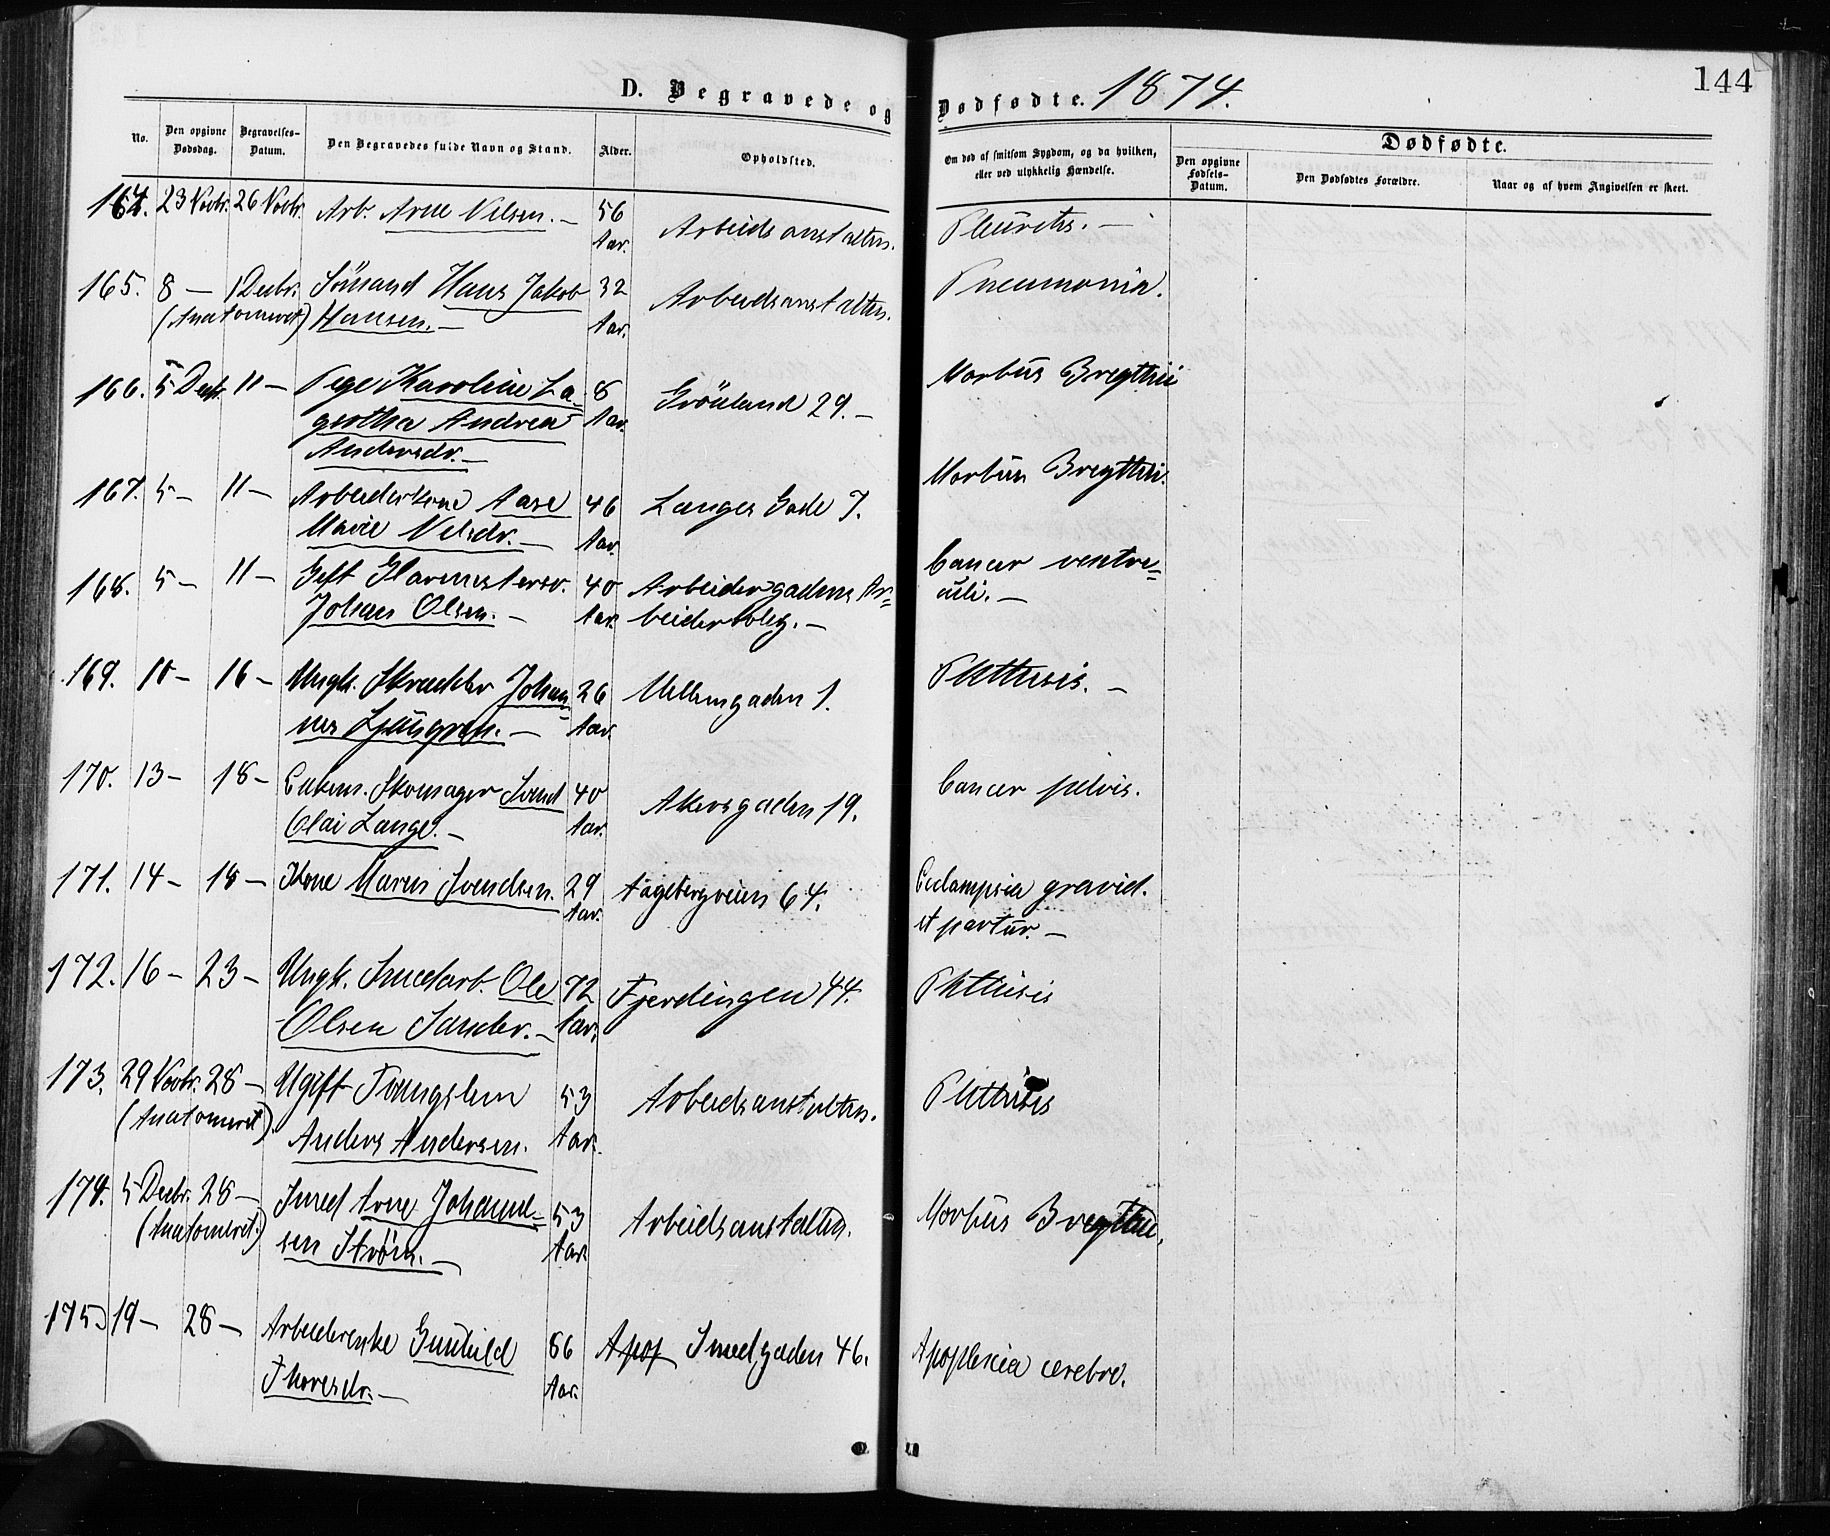 D. Begravede og Dødfødte. 1874.
144
No. Den opgivne Dødsdag. Begravelses-Datum. Den Begravedes fulde Navn og Stand. Alder. Opholdsted. Om død af smitsom Sygdom, og da hvilken, eller ved ulykkelig Hændelse. Dødfødte.
Den opgivne Fødsels-Datum. Den Dødfødtes Forældre. Naar og af hvem Angivelsen er skeet.
164. 23 Novbr. 26 Novbr. Arb. Arne Nilsen. — 56 Aar. Arbeidsanstalten. Pleurites. —
165. 8 — 1 Decbr. Sömand Hans Jakob 32 Arbeidsanstalten. Pneumonia.
(Anatomeret) Hansen. — Aar.
166. 5 Decbr. 11 — Pige Karoline La= 8 Grönland 29. — Morbus Bregthii
gertha Andrea Aar.
Andersdr. —
167. 5 — 11 — Arbeiderkone Aase 46 Langes Gade 7. Morbus Bregthii.
Marie Nilsdr. — Aar.
168. 5 — 11 — Gift Glarmestersv. 40 Arbeidergadens Ar= Cancer ventre=
Johan Olsen. — Aar. beiderbolig. — culi. —
169. 10 — 16 — Ungk. Skrædder Johan= 26 Møllergaden 1. Phthisis. —
nes Ljungren. — Aar.
170. 13 — 18 — Enkem. Skomager Svend 40 Akersgaden 19. Cancer pelvis.
Olai Lange. — Aar.
171. 14 — 18 — Kone Maren Svendsen. 29 Fagebergveien 64. Eclampsia gravid.
Aar. et partur. —
172. 16 — 23 — Ungk. Smedarb. Ole 72 Fjerdingen 44. Phthisis
Olsen Sander. — Aar.
173. 29 Novbr. 28 — Ugift Tvangslem 53 Arbeidsanstalten. Phthisis
(Anatomeret) Anders Andersen. Aar.
174. 5 Decbr. 28 — Smed Arne Johannes= 53 Arbeidsanstalten. Morbus Bregthii.
(Anatomeret.) sen Ström. — Aar.
175. 19 — 28 — Arbeiderenke Gunhild 66 Apop Smedgaden 46. Apoplexia cerebri.
Thoresdr. — Aar.